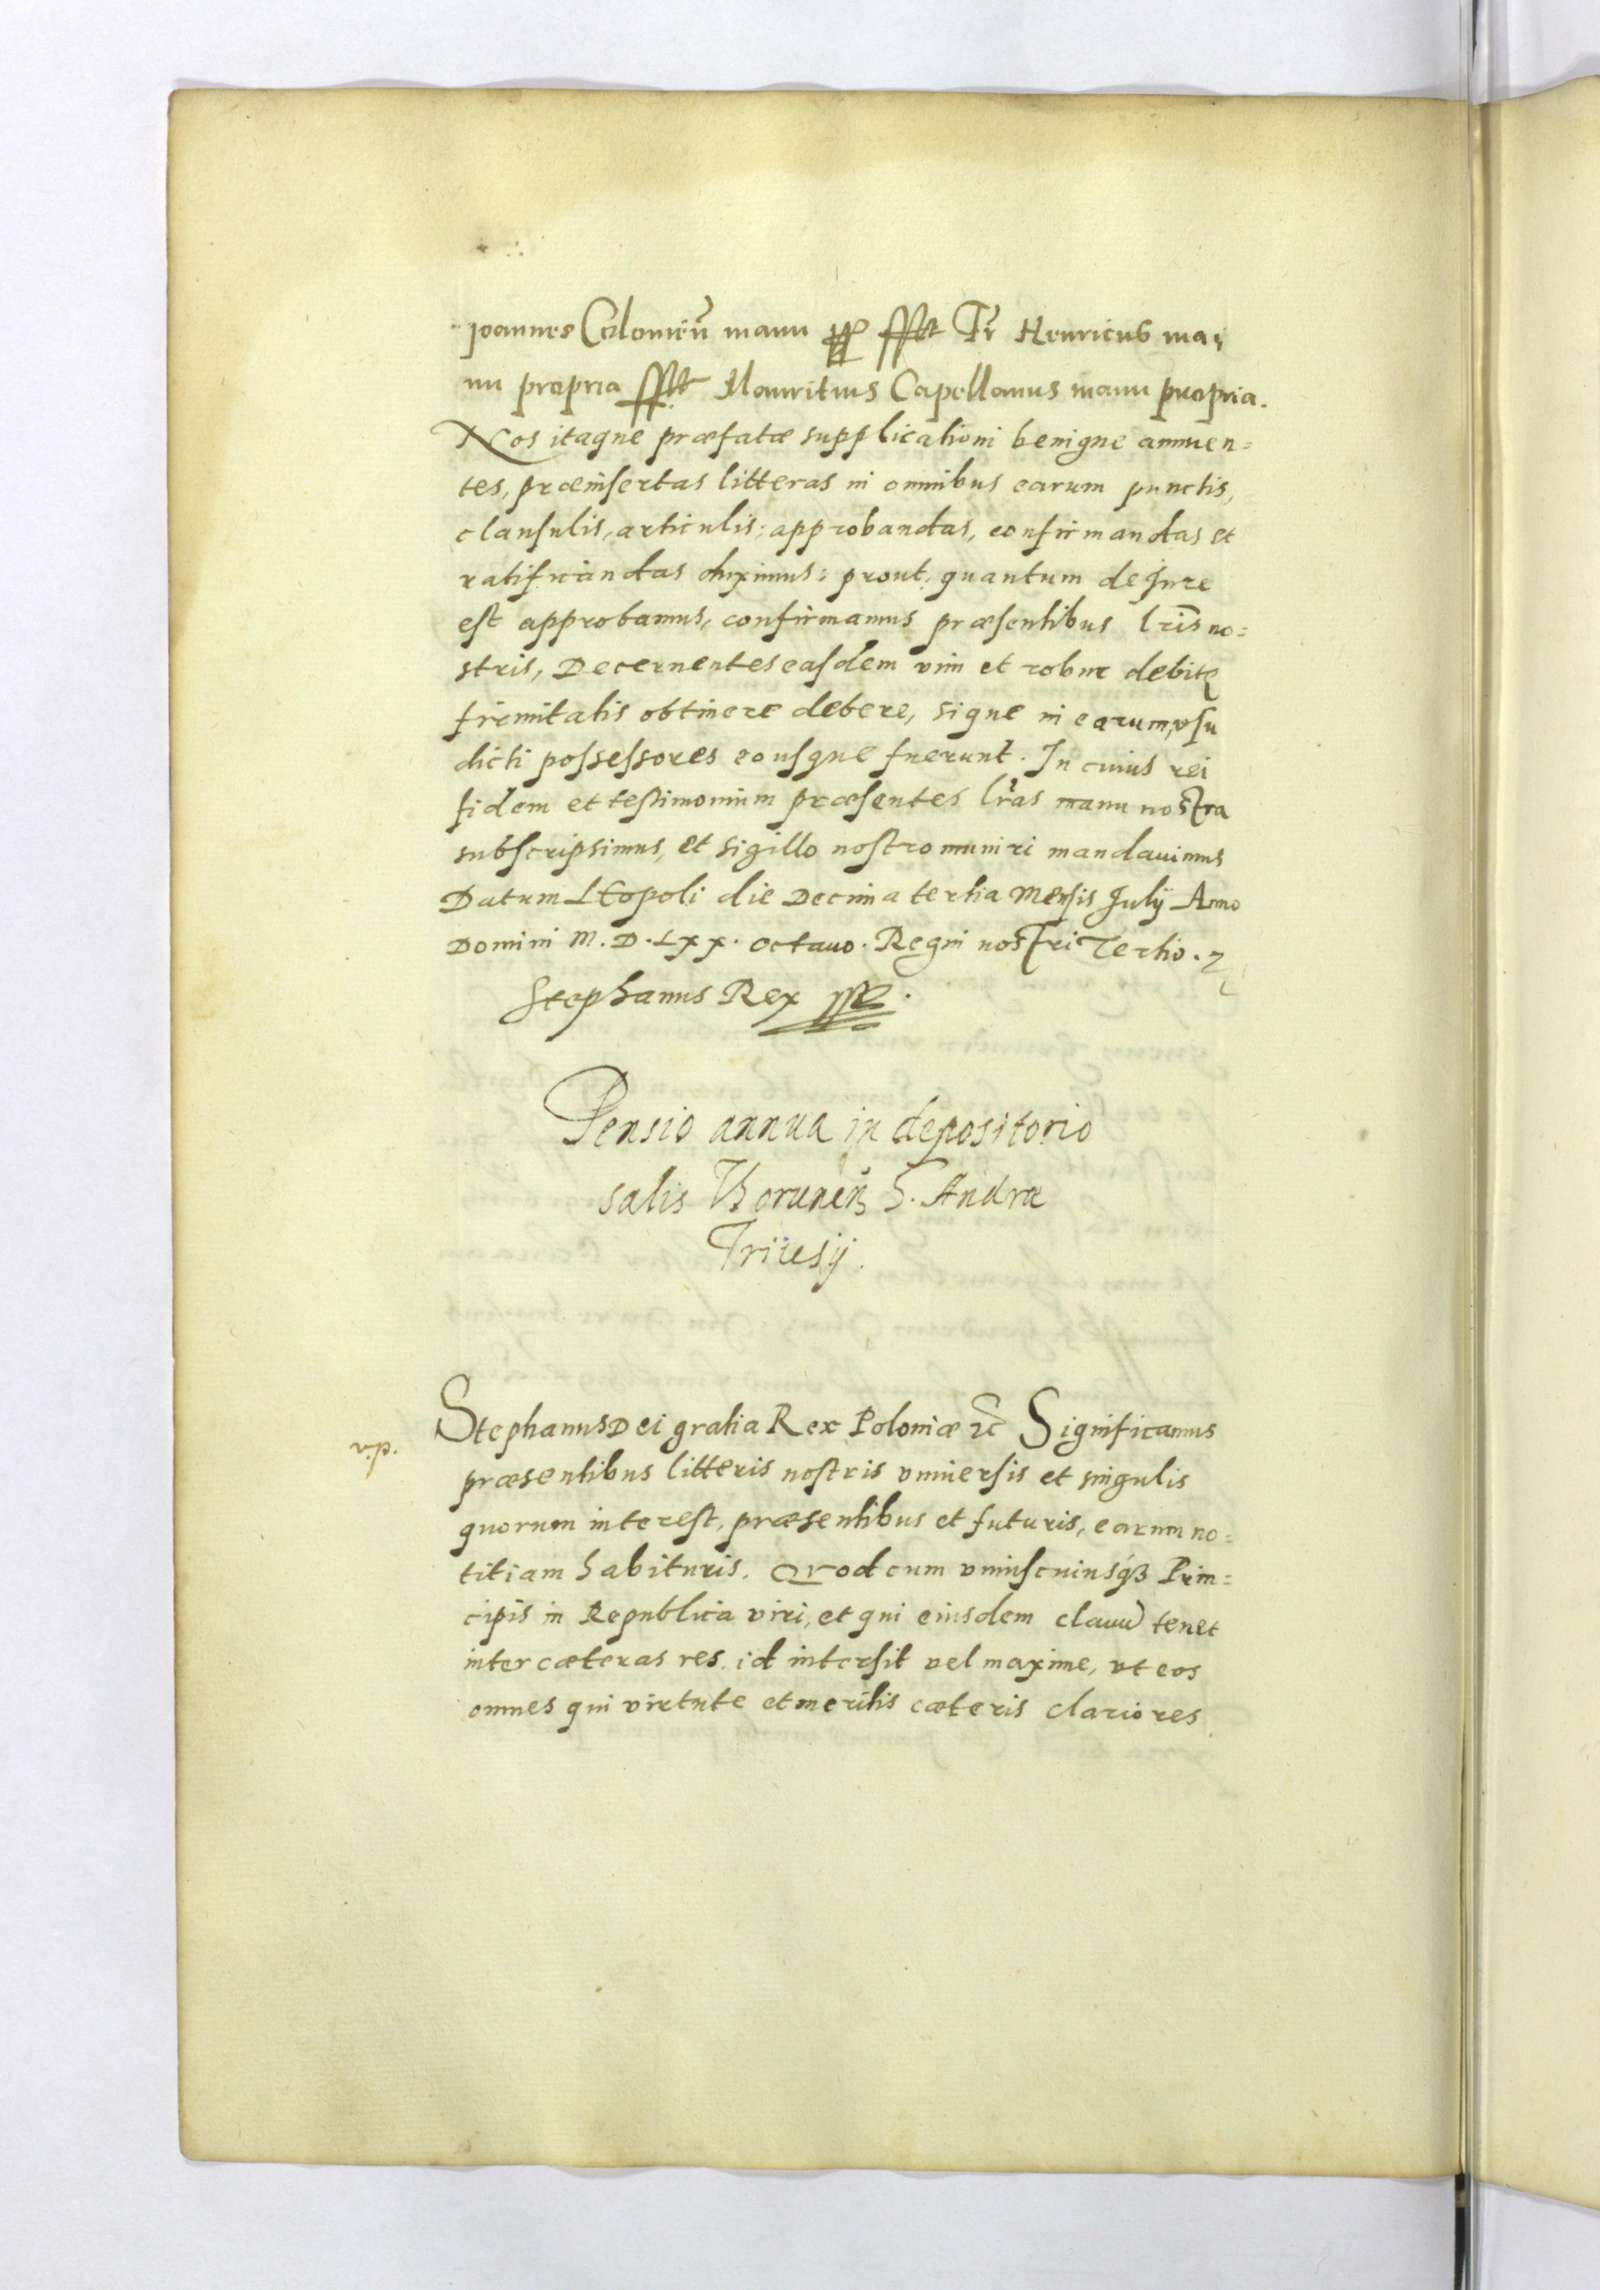 Joannes Colomeñ manu pp sst Fr Henricus ma,
nu propria sst Mauritius Capellanus manu propria.
Nos itaque præfatæ supplicationi benigne annuen=
tes, præinsertas litteras in omnibus earum punctis,
clausulis, articulis, approbandas, confirmandas et
ratificandas duximus: prout, quantum de Jure
est approbamus, confirmamus præsentibus lris no=
stris, Decernentes easdem vim et robur debitę
firmitatis obtinere debere, sique in earum, vsu
dicti possessores eousque fuerunt. In cuius rei
fidem et testimonium præsentes lras manu nostra
subscripsimus, et sigillo nostro muniri mandauimus
Datum LEopoli die Decima tertia Mensis July Anno
Domini M. D. Lxx. octauo. Regni nostri Tertio.
Stephanus Rex sst.
Pensio annua in depositorio
salis Thorunen G. Andræ
Tricesij.
Stephanus Dei gratia Rex Poloniæ etc Significamus
præsentibus litteris nostris vniuersis et singulis
quorum interest, præsentibus et futuris, earum no=
titiam habituris. Quod cum vniuscuiusq3 Prin=
cipis in Republica viri, et qui eiusdem clauū tenet
inter cæteras res, id intersit vel maxime, vt eos
omnes qui virtute et meritis cæteris clariores